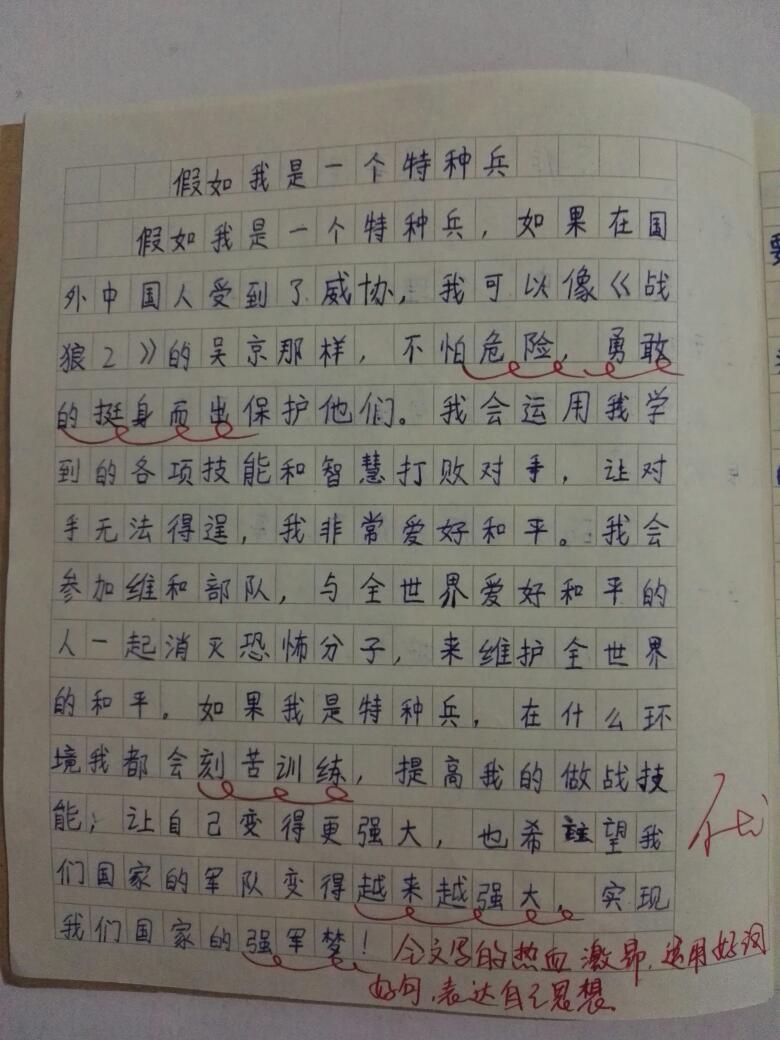 假如我是一个特种兵
假如我是一个特种兵，如果在国
外中国人受到了威协，我可以像《战
狼2》的吴京那样，不怕危险，勇敢
的挺身而出保护他们。我会运用我学
到的各项技能和智慧打败对手，让对
手无法得逞，我非常爱好和平。我会
参加维和部队，与全世界爱好和平的
人一起消灭恐怖分子，来维护全世界
的和平。如果我是特种兵，在什么环
境我都会刻苦训练，提高我的做战技
能；让自己变得更强大，也希望我
们国家的军队变得越来越强大，实现
我们国家的强军梦！
全文写的热血激昂，运用好词
好句，表达自己思想